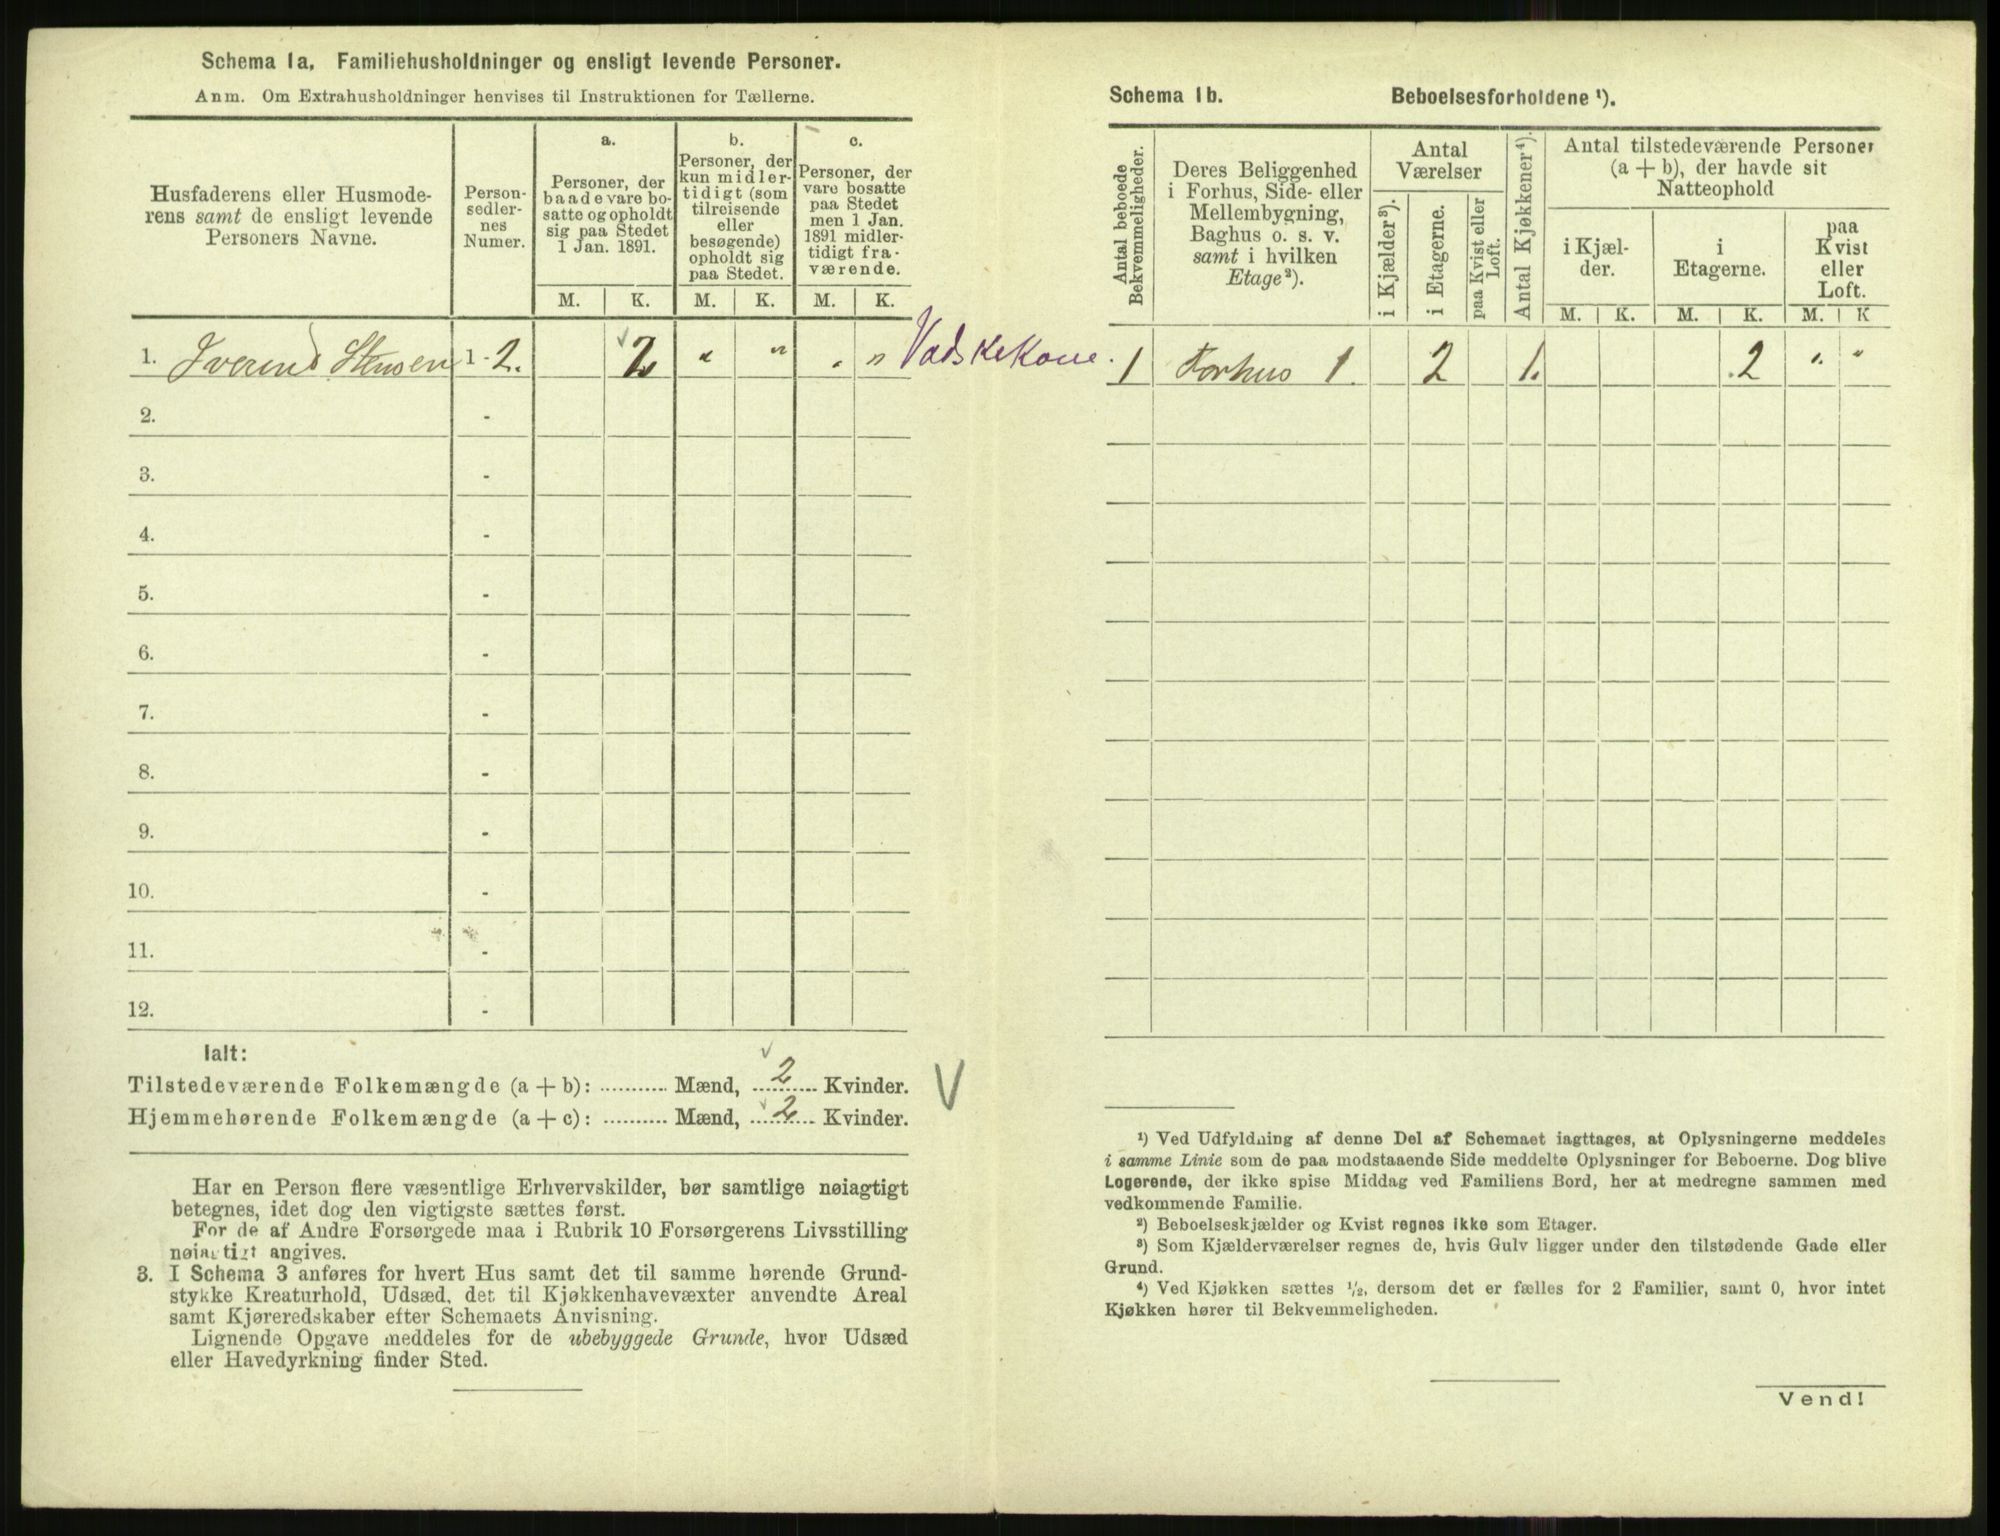 Schema 1a. Familiehusholdninger og ensligt levende Personer.
Anm. Om Extrahusholdninger henvises til Instruktionen for Tællerne.
Husfaderens eller Husmode-
rens samt de ensligt levende
Personers Navne.
Person-
sedler-
nes
Numer.
a.
Personer, der
baade vare bo-
satte og opholdt
sig paa Stedet
1 Jan. 1891.
b.
Personer, der
kun midler-
tidigt (som
tilreisende
eller
besøgende)
opholdt sig
paa Stedet.
c.
Personer, der
vare bosatte
paa Stedet
men 1 Jan.
1891 midler-
tidigt fra-
værende.
M. K. M. K. M. K.
1. Stensen 1-2. 2 " " " " Vadskekone.
2. -
3. -
4. -
5. -
6. -
7. -
8. -
9. -
10. -
11. -
12. -
Ialt:
Tilstedeværende Folkemængde (a + b): ........... Mænd, 2 Kvinder.
Hjemmehørende Folkemængde (a + c): ........... Mænd, 2 Kvinder.
V
Har en Person flere væsentlige Erhvervskilder, bør samtlige nøiagtigt
betegnes, idet dog den vigtigste sættes først.
For de af Andre Forsørgede maa i Rubrik 10 Forsørgerens Livsstilling
nøiagtigt angives.
3. I Schema 3 anføres for hvert Hus samt det til samme hørende Grund-
stykke Kreaturhold, Udsæd, det til Kjøkkenhavevæxter anvendte Areal
samt Kjøreredskaber efter Schemaets Anvisning.
Lignende Opgave meddeles for de ubebyggede Grunde, hvor Udsæd
eller Havedyrkning finder Sted.
Schema 1b. Beboelsesforholdene ¹).
Antal beboede
Bekvemmeligheder.
Deres Beliggenhed
i Forhus, Side- eller
Mellembygning,
Baghus o. s. v.
samt i hvilken
Etage²).
Antal
Værelser
i Kjælder³).
i Etagerne.
paa Kvist eller
Loft.
Antal Kjøkkener⁴).
Antal tilstedeværende Personer
(a + b), der havde sit
Natteophold
i Kjæl-
der.
i
Etagerne.
paa
Kvist
eller
Loft.
M. K. M. K. M. K
1 Forhus 1. 2 1. 2 " "
¹) Ved Udfyldning af denne Del af Schemaet iagttages, at Oplysningerne meddeles
i samme Linie som de paa modstaaende Side meddelte Oplysninger for Beboerne. Dog blive
Logerende, der ikke spise Middag ved Familiens Bord, her at medregne sammen med
vedkommende Familie.
²) Beboelseskjælder og Kvist regnes ikke som Etager.
³) Som Kjælderværelser regnes de, hvis Gulv ligger under den tilstødende Gade eller
Grund.
⁴) Ved Kjøkken sættes ½, dersom det er fælles for 2 Familier, samt 0, hvor intet
Kjøkken hører til Bekvemmeligheden.
Vend!